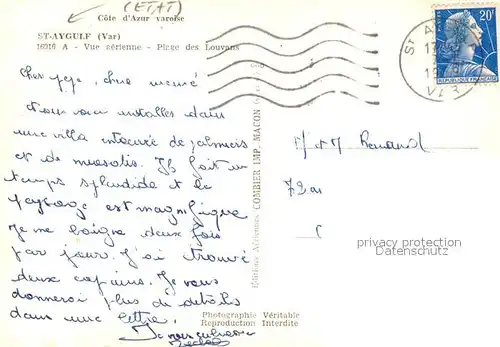 (ETAT)
Côte d'Azur varoise
ST-AYGULF (Var)
16916 A - Vue aérienne - Plage des Louvans
20F
REPUBLIQUE FRANÇAISE
VAR
Cher pépé, chère mémé
Nous voici installés dans
une villa entourée de palmiers
et de mimosas. Il fait un
temps splendide et le
paysage est magnifique
Je me baigne deux fois
par jour. J'ai trouvé
deux copains. Je vous
donnerai plus de détails
dans une lettre.
Je vous embrasse
Editions Aériennes COMBIER IMP. MACON
M et M Renard
72
privacy protection
Datenschutz
Photographie Véritable
Reproduction Interdite